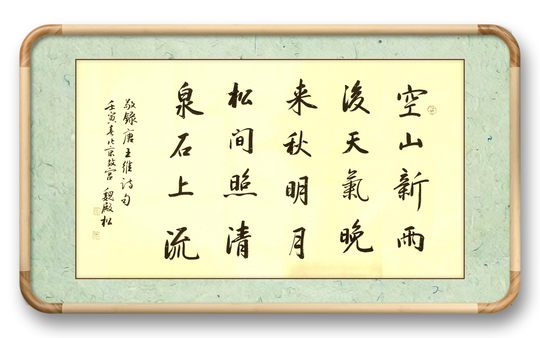 空山新雨
後天氣晚
来秋明月
松间照清
泉石上流
敬錄唐王維詩句
壬寅春北京故宫 魏殿松